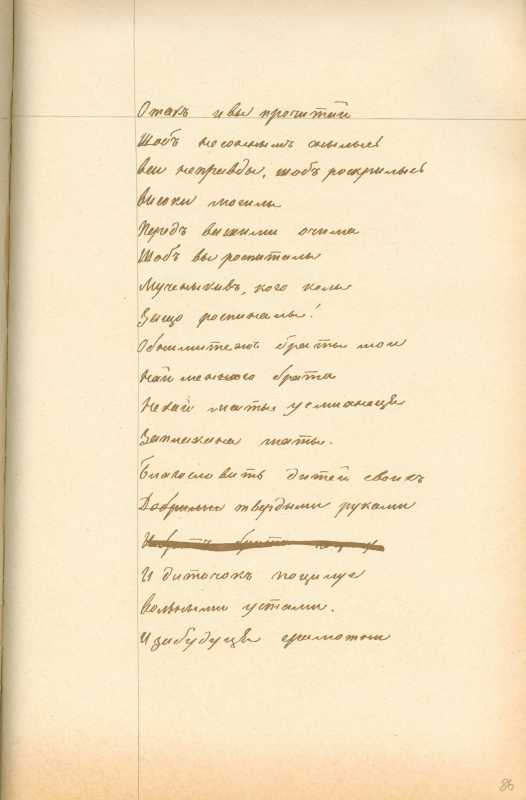 Отакъ и вы прочитай
Щобъ несоннымъ снылысь
Вси неправды, щобъ роскрилысь
Високи могилы
Передъ вашими очима
Щобъ вы роспиталы
Мученыкивъ, кого колы
Защо роспиналы!
Обнимитежъ браты мои
Найменьшого брата
Нехай маты усмихнеця
Заплакана маты.
Благословить дитей своихъ
Добрилыи твердыми руками
И диточокъ поцилує
Вольными устами.
И забудуця срамотни
86